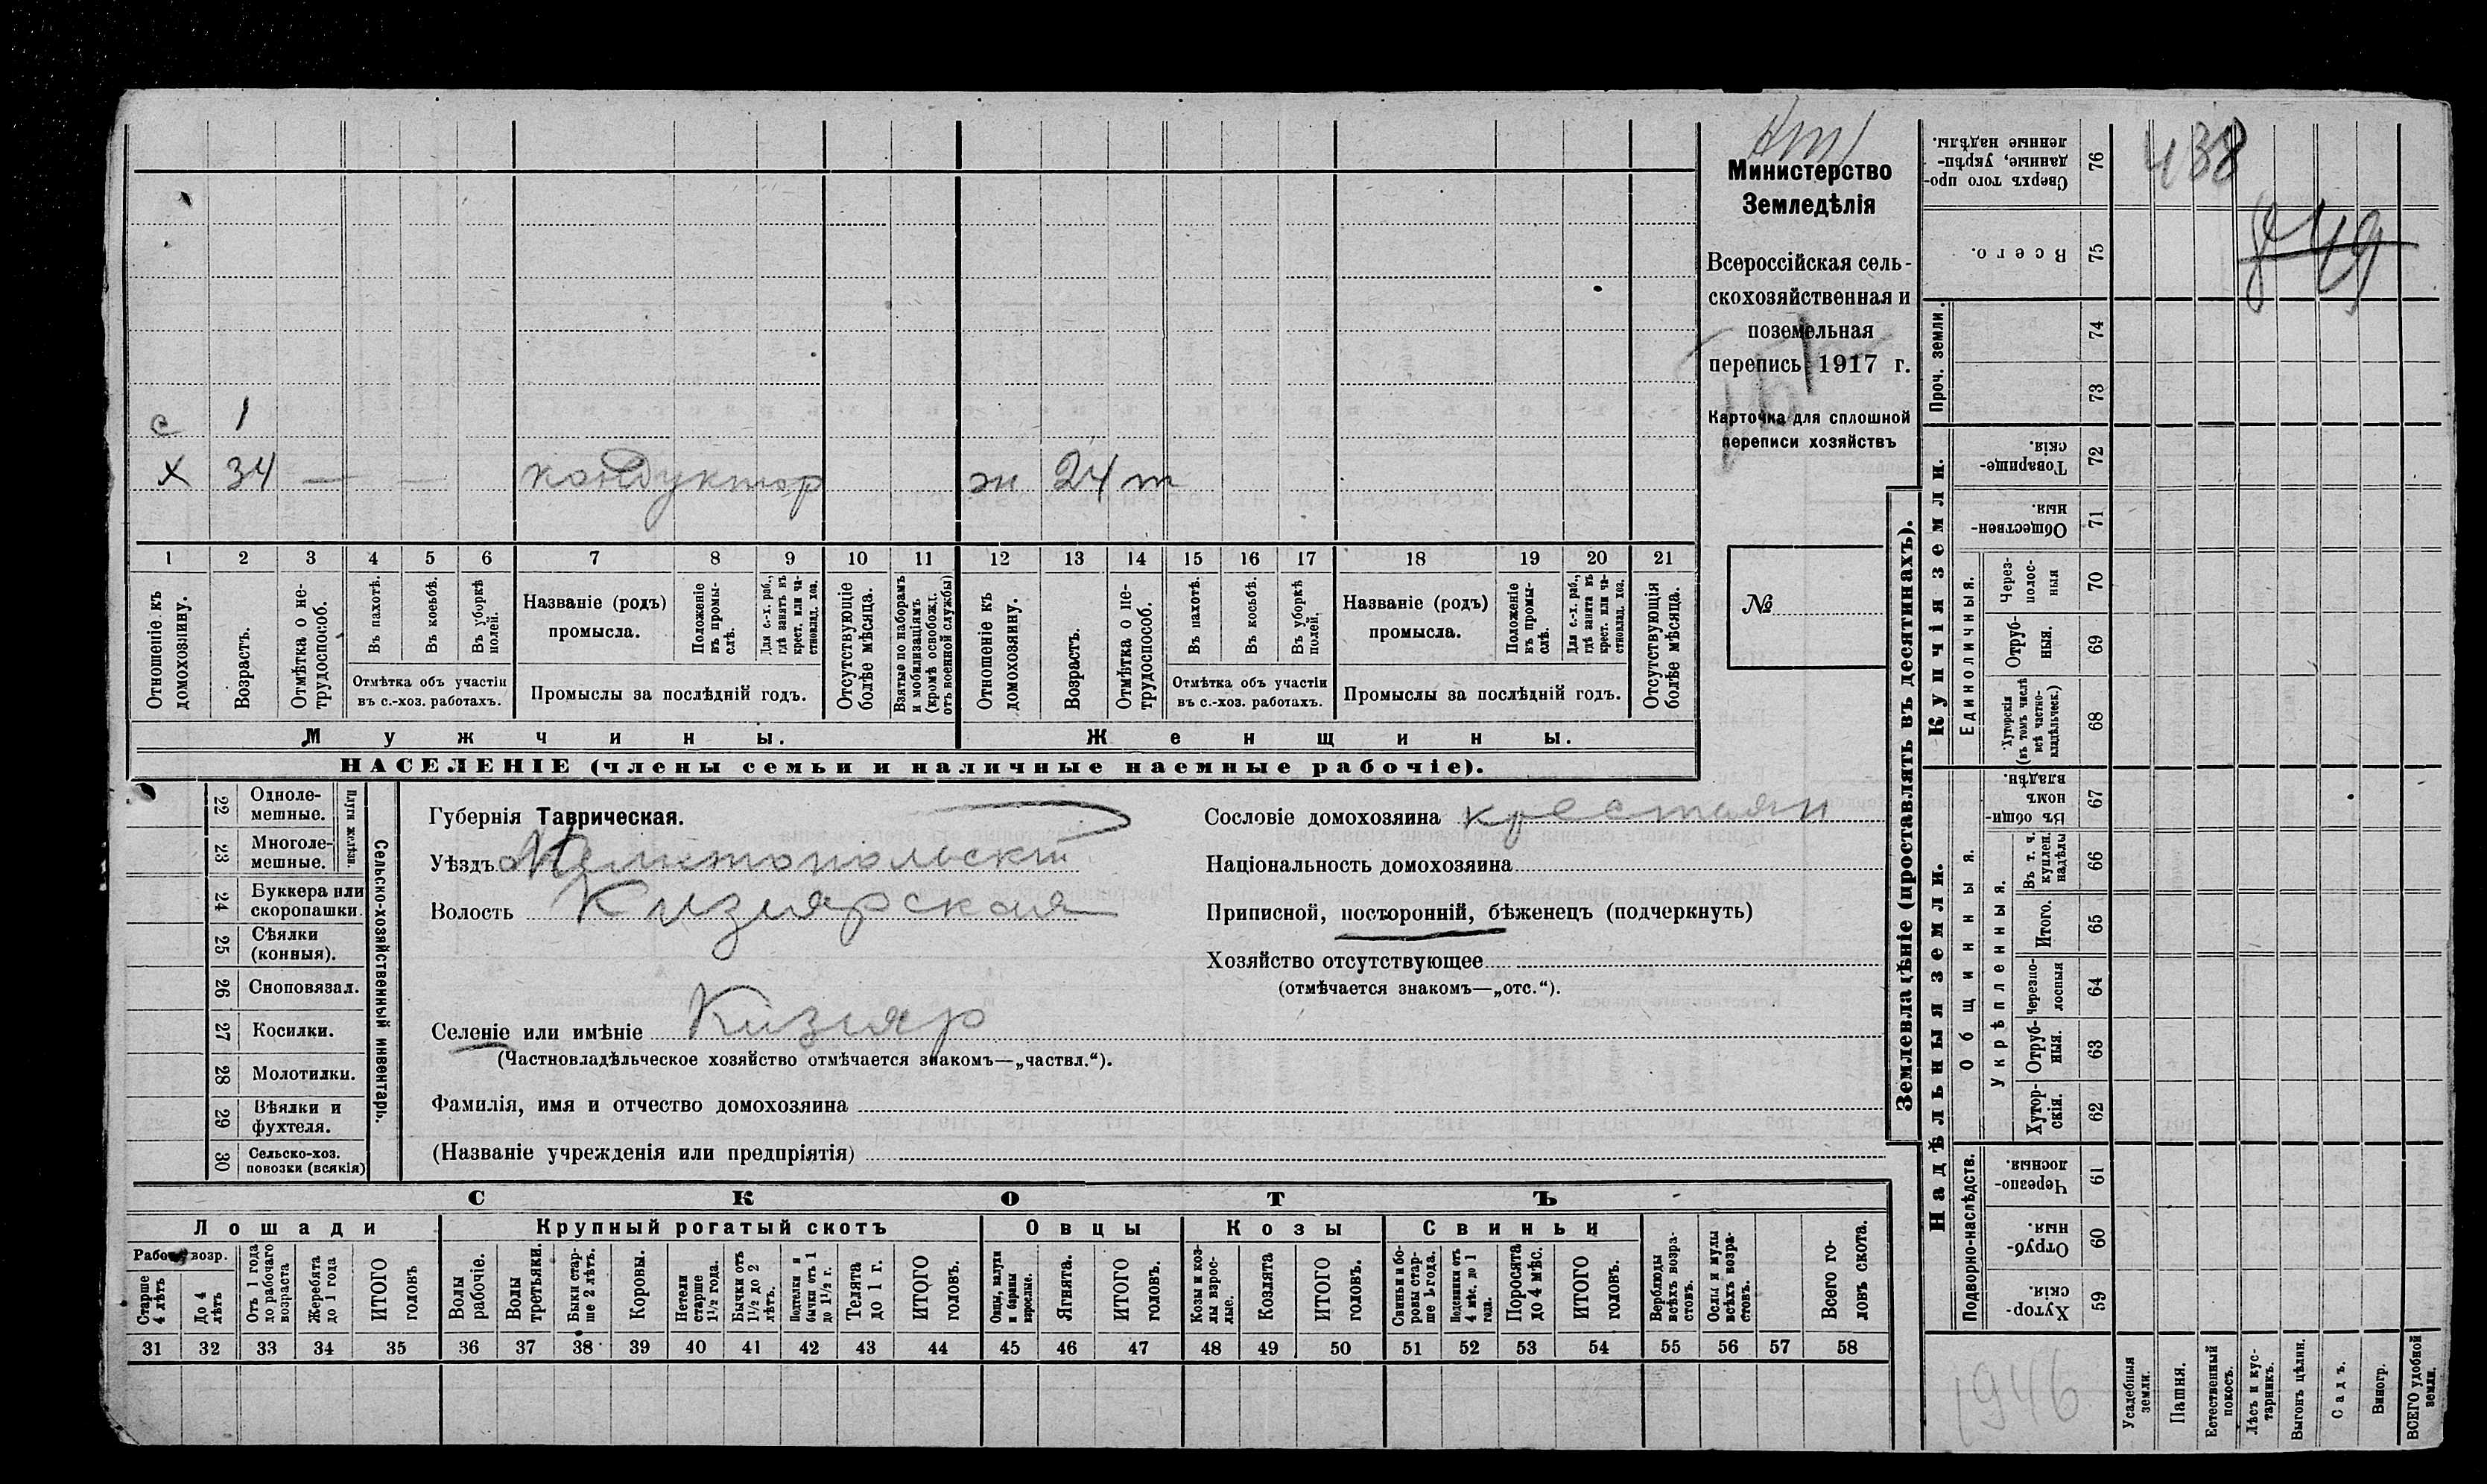 Министерство
Земледѣлія
Всероссійская сель-
скохозяйственная и
поземельная
перепись 1917 г.
Карточка для сплошной
переписи хозяйствъ
№
438
849
с 1
х 34 — — кондуктор ж 24 т
1 2 3 4 5 6 7 8 9 10 11 12 13 14 15 16 17 18 19 20 21
Отношеніе къ домохозяину.
Возрастъ.
Отмѣтка о не-трудоспособ.
Въ пахотѣ.
Въ косьбѣ.
Въ уборкѣ полей.
Отмѣтка объ участіи
въ с.-хоз. работахъ.
Названіе (родъ)
промысла.
Положеніе въ промы-слѣ.
Для с.-х. раб., гдѣ занятъ въ крест. или ча-стновлад. хоз.
Промыслы за послѣдній годъ.
Отсутствующіе болѣе мѣсяца.
Взятые по наборамъ и мобилизаціямъ (кромѣ освобожд. отъ военной службы)
Отношеніе къ домохозяину.
Возрастъ.
Отмѣтка о не-трудоспособ.
Въ пахотѣ.
Въ косьбѣ.
Въ уборкѣ полей.
Отмѣтка объ участіи
въ с.-хоз. работахъ.
Названіе (родъ)
промысла.
Положеніе въ промы-слѣ.
Для с.-х. раб., гдѣ занята въ крест. или ча-стновлад. хоз.
Промыслы за послѣдній годъ.
Отсутствующія болѣе мѣсяца.
Мужчины.
Женщины.
НАСЕЛЕНІЕ (члены семьи и наличные наемные рабочіе).
Сельско-хозяйственный инвентарь.
Плуги желѣзн.
22 Одноле-мешные.
23 Многоле-мешные.
24 Буккера или скоропашки.
25 Сѣялки (конныя).
26 Сноповязал.
27 Косилки.
28 Молотилки.
29 Вѣялки и фухтеля.
30 Сельско-хоз. повозки (всякія)
Губернія Таврическая.
Уѣздъ Мелитопольскій
Волость Кизиярская
Селеніе или имѣніе Кизияр
(Частновладѣльческое хозяйство отмѣчается знакомъ—„частвл.“).
Фамилія, имя и отчество домохозяина
(Названіе учрежденія или предпріятія)
Сословіе домохозяина крестьян
Національность домохозяина
Приписной, посторонній, бѣженецъ (подчеркнуть)
Хозяйство отсутствующее
(отмѣчается знакомъ—„отс.“).
СКОТЪ
Лошади
Крупный рогатый скотъ
Овцы
Козы
Свиньи
Рабоч. возр.
Старше 4 лѣтъ
До 4 лѣтъ
Отъ 1 года до рабочаго возраста
Жеребята до 1 года
ИТОГО головъ
Волы рабочіе.
Волы третьяки.
Быки стар-ше 2 лѣтъ.
Коровы.
Нетели старше 1½ года.
Бычки отъ 1½ до 2 лѣтъ.
Подтелки и бычки отъ 1 до 1½ г.
Телята до 1 г.
ИТОГО головъ.
Овцы, валухи и бараны взрослые.
Ягнята.
ИТОГО головъ.
Козы и коз-лы взрос-лые.
Козлята
ИТОГО головъ.
Свиньи и бо-ровы стар-ше 1 года.
Подсвинки отъ 4 мѣс. до 1 года.
Поросята до 4 мѣс.
ИТОГО головъ.
Верблюды всѣхъ возра-стовъ.
Ослы и мулы всѣхъ возра-стовъ.
Всего го-ловъ скота.
31 32 33 34 35 36 37 38 39 40 41 42 43 44 45 46 47 48 49 50 51 52 53 54 55 56 57 58
Землевладѣніе (проставлять въ десятинахъ).
Купчія земли.
Проч. земли.
76 Сверхъ того про-данные, укрѣп-ленные надѣлы.
75 Всего.
74
73
72 Товарище-скія.
71 Обществен-ныя.
Единоличныя.
70 Через-полос-ныя
69 Отруб-ныя.
68 Хуторскія (въ томъ числѣ всѣ частно-владѣльческ.)
Надѣльныя земли.
Общинныя.
67 Въ общин-номъ владѣн.
66 Въ т. ч. куплен. надѣлы
Укрѣпленныя.
65 Итого.
64 Черезпо-лосныя
63 Отруб-ныя.
62 Хутор-скія.
Подворно-наслѣдств.
61 Черезпо-лосныя.
60 Отруб-ныя.
59 Хутор-скія.
1946
Усадебная земли.
Пашня.
Естественный покосъ.
Лѣсъ и кус-тарникъ.
Выгонъ цѣлин.
Садъ.
Виногр.
ВСЕГО удобной земли.